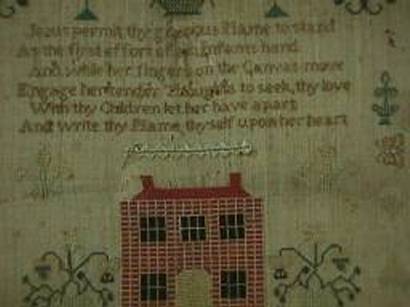 Jesus permit thy gracious Name to stand
As the first effort of an Infants hand
And while her fingers on the Canvas move
Engage her tender Thoughts to seek thy love
With thy Children let her have a part
And write thy Name thyself upon her heart